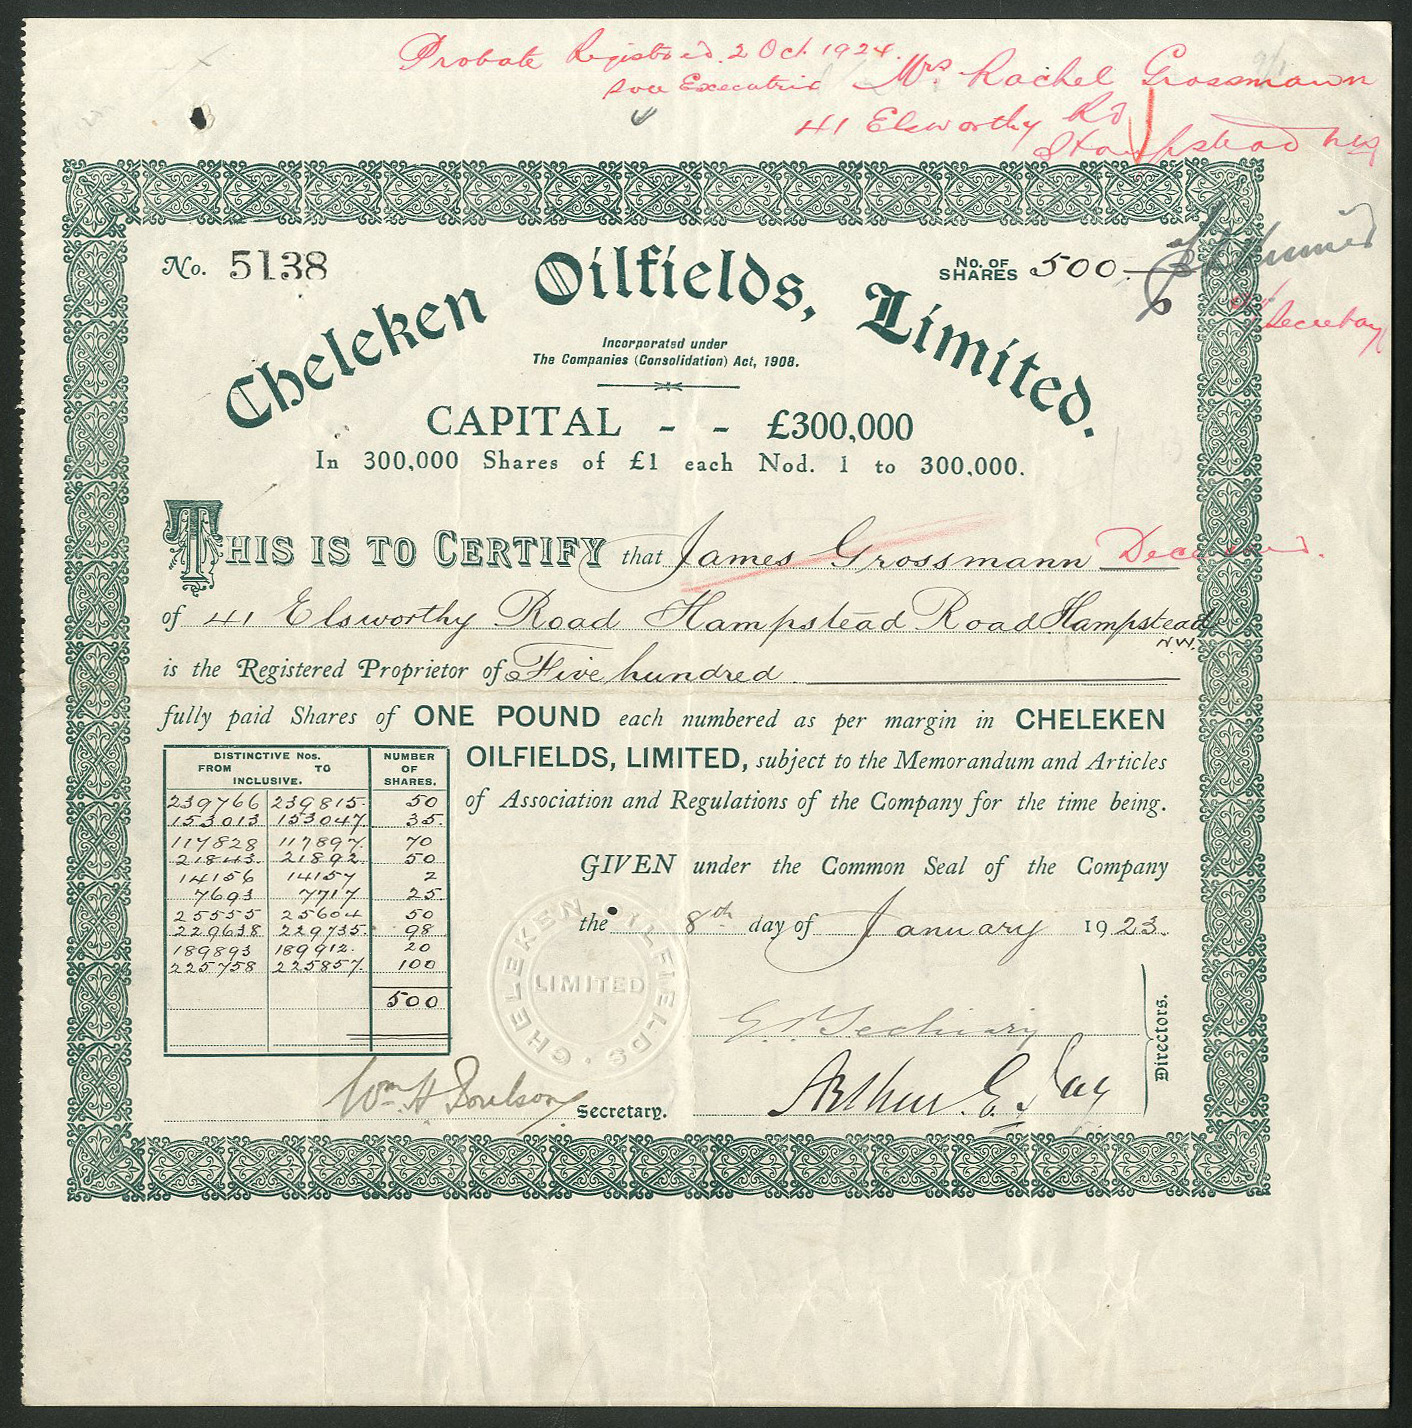 Probate Registered. 2 Oct. 1924.
sole Executrix Mrs Rachel Grossmann
41 Elsworthy Rd
Hampstead NW
No. 5138
No. OF SHARES 500
Secretary
Cheleken Oilfields, Limited.
Incorporated under
The Companies (Consolidation) Act, 1908.
CAPITAL - - £300,000
In 300,000 Shares of £1 each Nod. 1 to 300,000.
THIS IS TO CERTIFY that James Grossmann Deceased.
of 41 Elsworthy Road Hampstead Road Hampstead
N.W.
is the Registered Proprietor of Five hundred
fully paid Shares of ONE POUND each numbered as per margin in CHELEKEN
OILFIELDS, LIMITED, subject to the Memorandum and Articles
of Association and Regulations of the Company for the time being.
DISTINCTIVE Nos. NUMBER
FROM TO OF
INCLUSIVE. SHARES.
239766 239815 50
153013 153047 35
117828 117897 70
21843 21892 50
14156 14157 2
7693 7717 25
25555 25604 50
229638 229735 98
189893 189912 20
225758 225857 100
500
GIVEN under the Common Seal of the Company
the 8th day of January 1923.
CHELEKEN OILFIELDS
LIMITED
Directors.
Wm. H. Soulson
Secretary.
Arthur E.